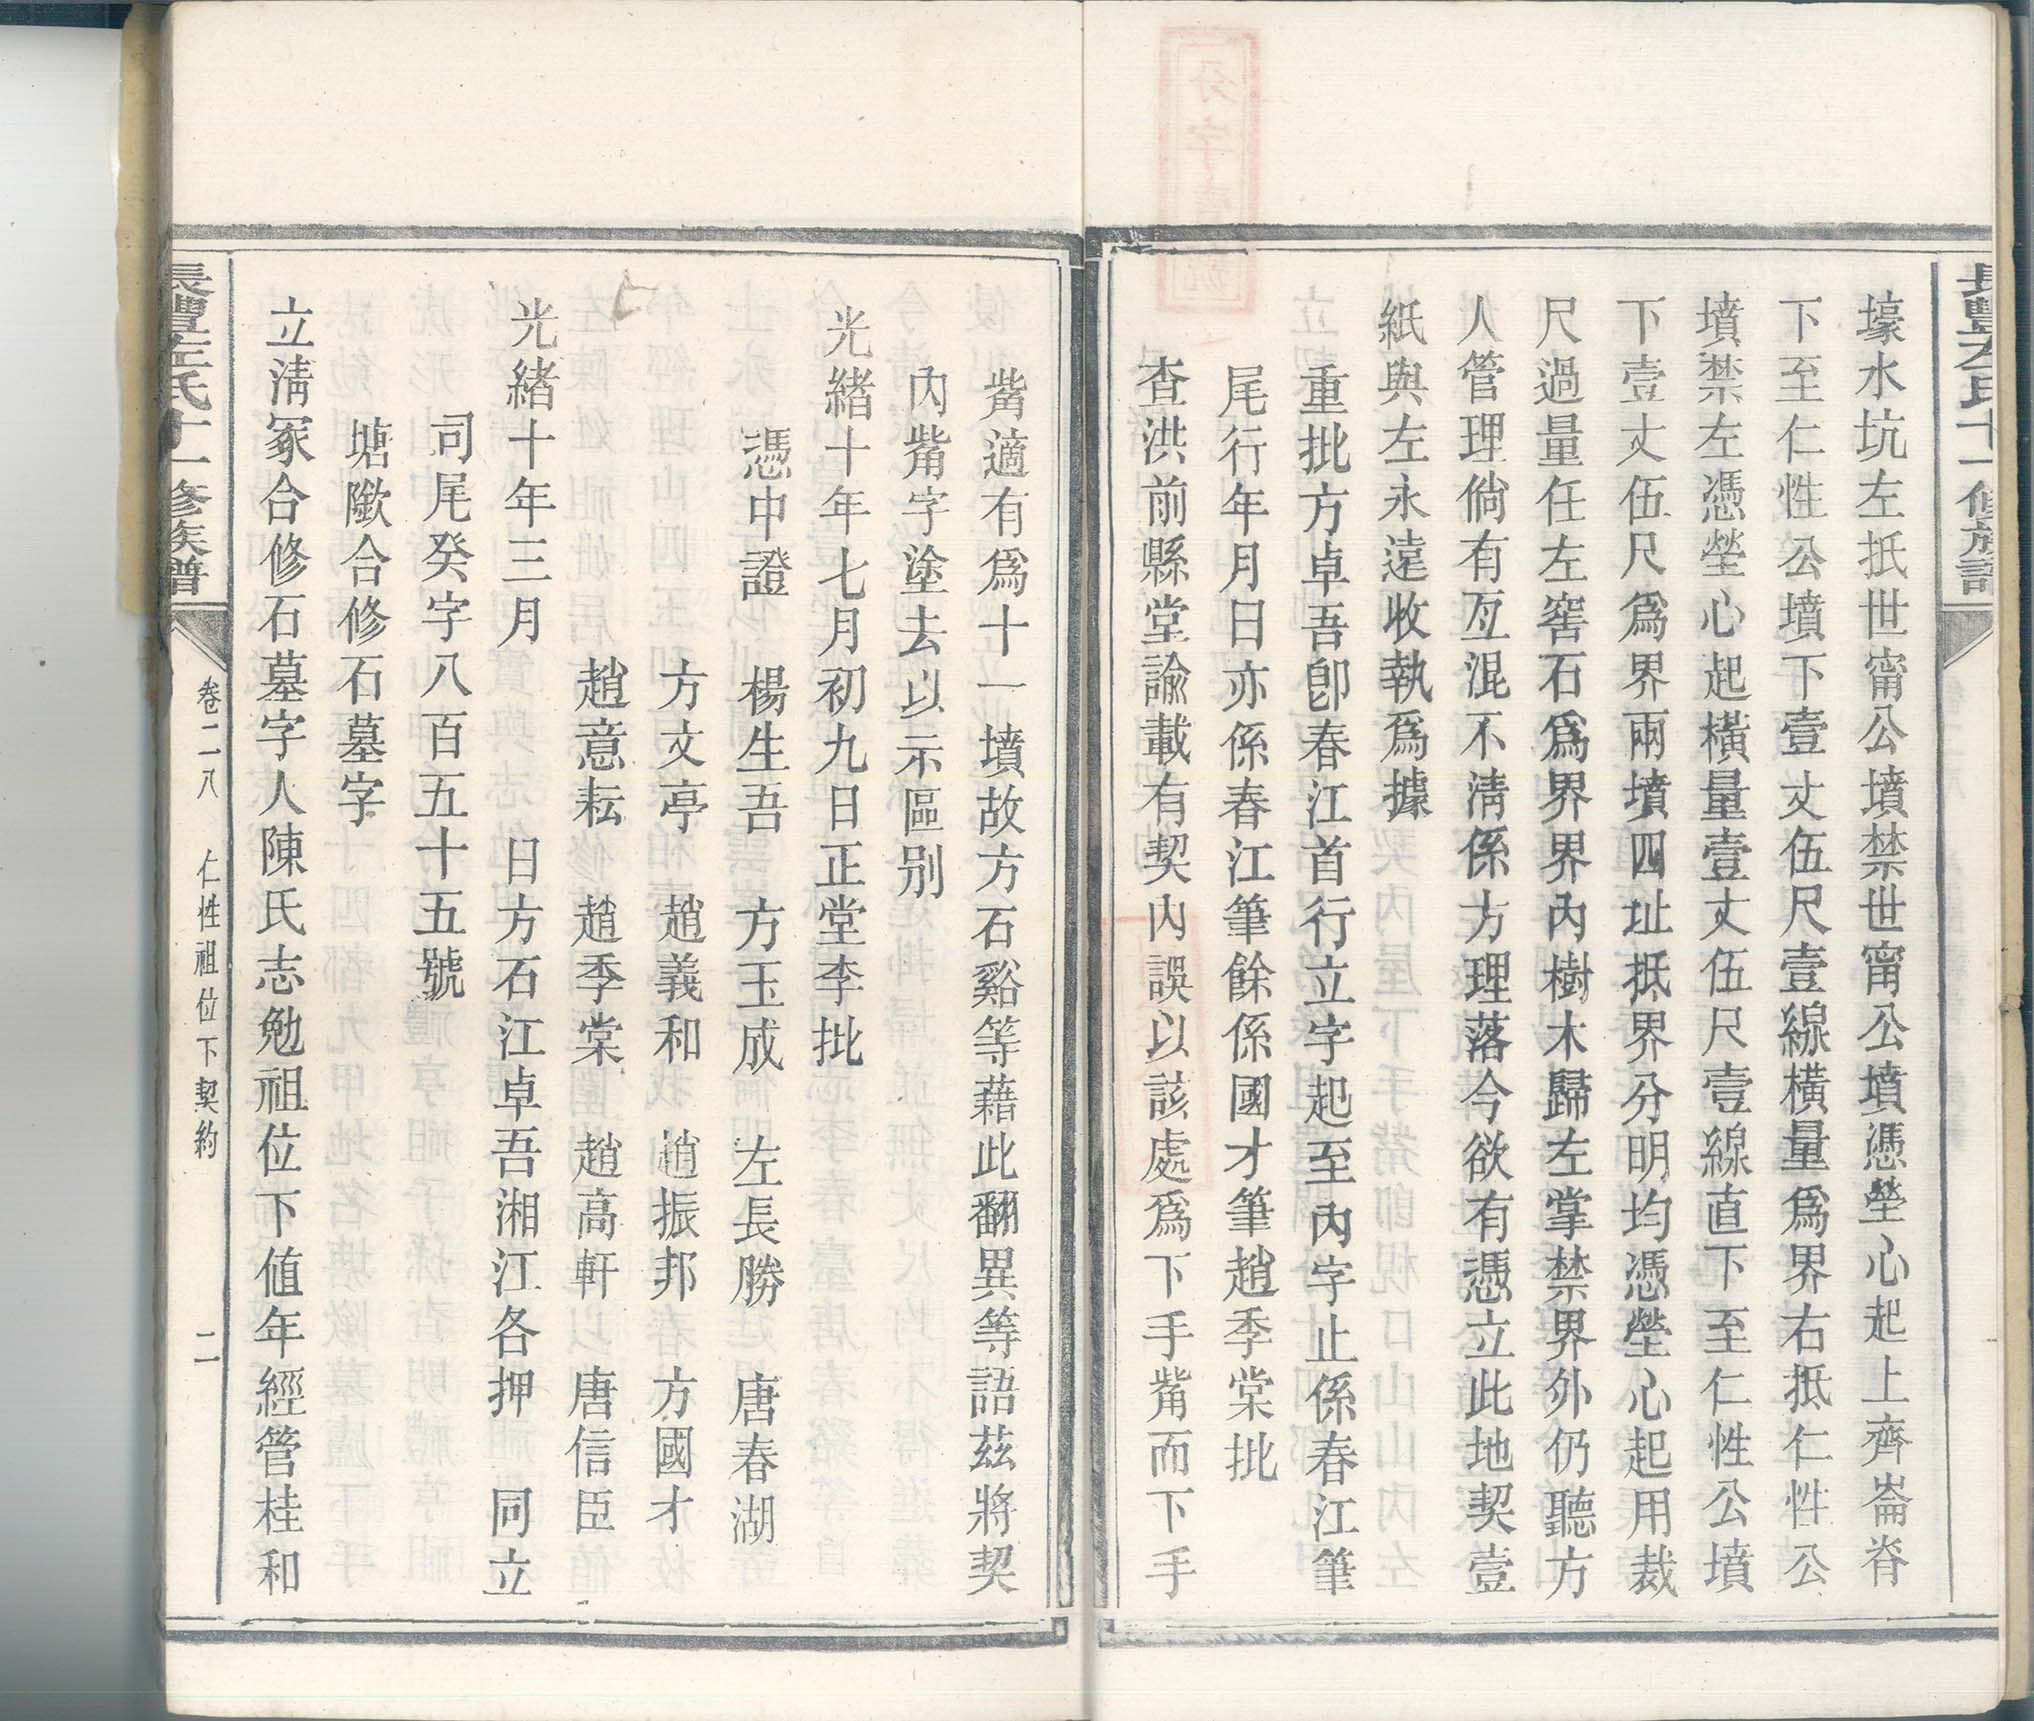 長豐左氏十一修族譜
壕水坑左抵世甯公墳禁世甯公墳憑塋心起上齊崙脊
下至仁性公墳下壹丈伍尺壹線橫量爲界右抵仁性公
墳禁左憑塋心起橫量壹丈伍尺壹線直下至仁性公墳
下壹丈伍尺爲界兩墳四址抵界分明均憑塋心起用裁
尺過量任左窖石爲界界內樹木歸左掌禁界外仍聽方
人管理倘有亙混不淸係方理落今欲有憑立此地契壹
紙與左永遠收執爲據
重批方卓吾卽春江首行立字起至內字止係春江筆
尾行年月日亦係春江筆餘係國才筆趙季棠批
查洪前縣堂諭載有契內誤以該處爲下手觜而下手
觜適有爲十一墳故方石谿等藉此翻異等語茲將契
內觜字塗去以示區别
光緒十年七月初九日正堂李批
憑中證 楊生吾 方玉成 左長勝 唐春湖
方文亭 趙義和 趙振邦 方國才
趙意耘 趙季棠 趙高軒 唐信臣
光緒十年三月 日方石江卓吾湘江各押 同立
司尾癸字八百五十五號
塘歐合修石墓字
立淸冢合修石墓字人陳氏志勉祖位下値年經管桂和
長豐左氏十一修族譜
卷二八 仁性祖位下契約 二